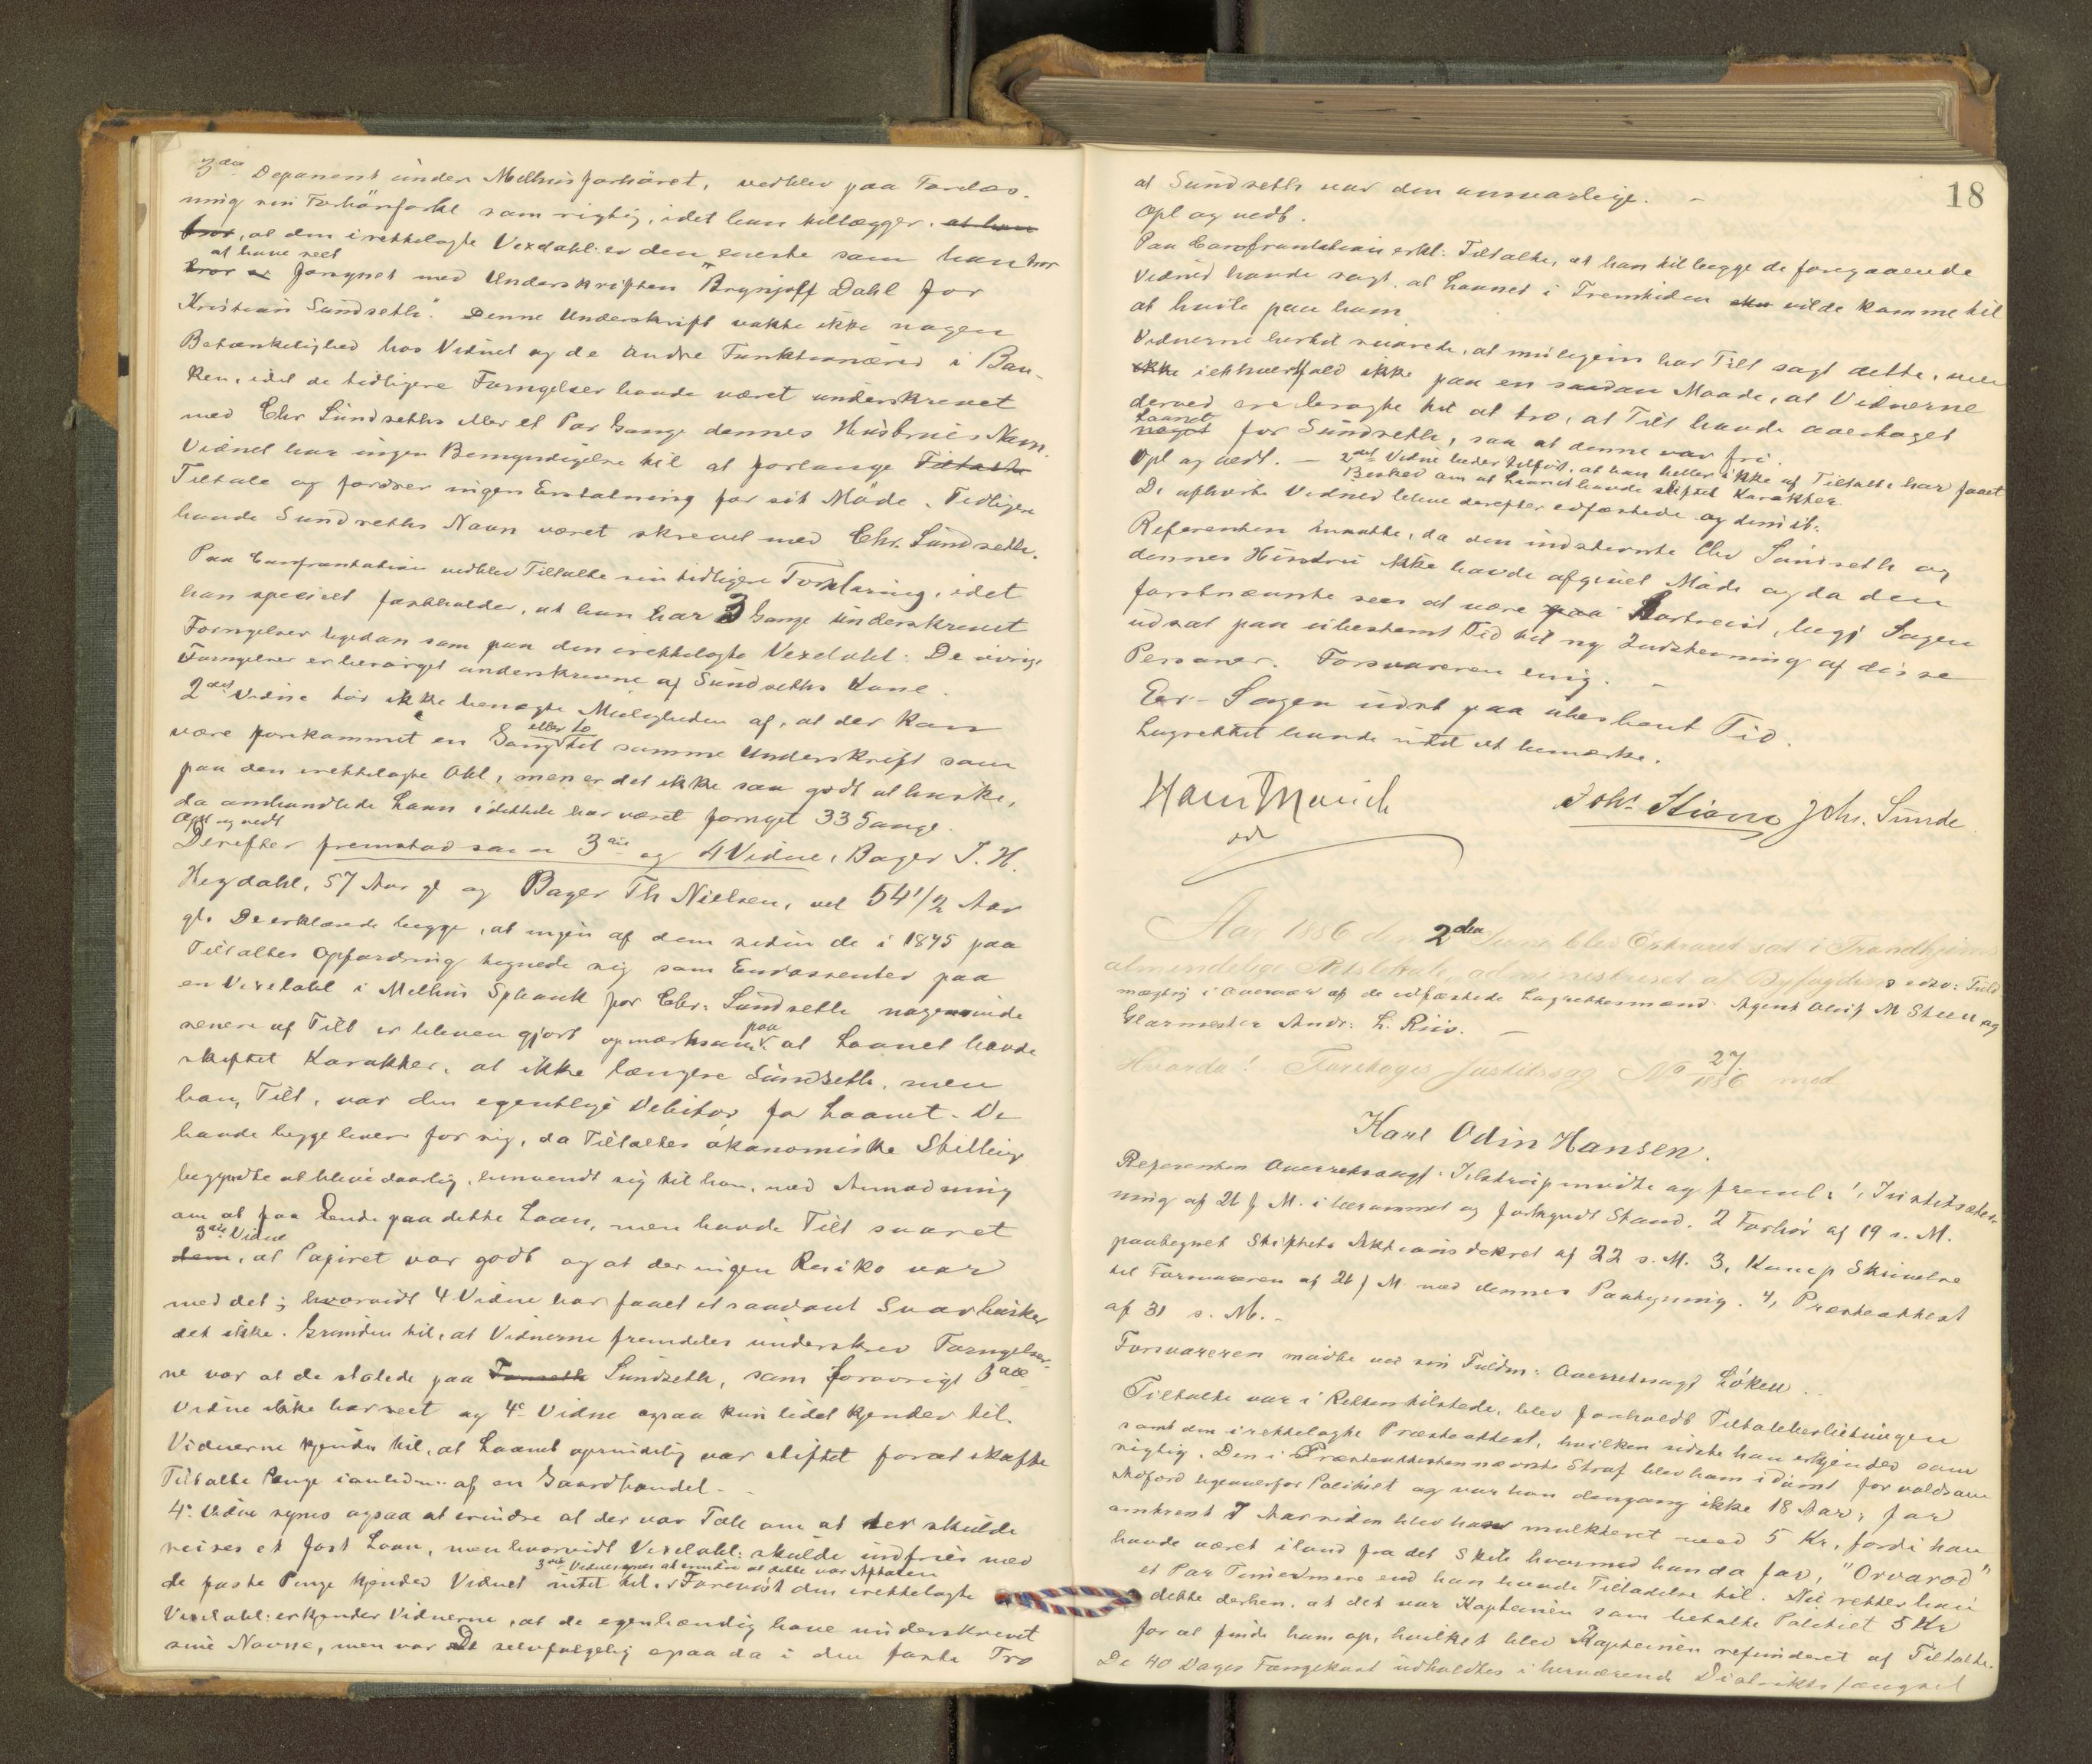 3die Deponent under Melhusforhöret, vedblev paa Foreläs-
ning sin Forhörsforkl som rigtig, idet han tillægger. at han
tror, at den irettelagte Vexelobl: er den eneste som han tror
at have seet
tror er fornyet med Underskriften "Brynjolf Dahl for
Kristian Sundseth". Denne Underskrift vakte ikke nogen
Betænkelighed hos Vidnet og de andre Funktionærer i Ban-
ken, idet de tidligere Fornyelser havde været underskrevet
med Chr Sundseths eller et Par Gange dennes Hustrues Navn.
Vidnet har ingen Bemyndigelse til at forlange Tiltalte
Tiltale og fordrer ingen Erstatning for sit Möde. Tidligere
havde Sundseths Navn været skrevet med Chr. Sundseth.
Paa Confrontation vedblev Tiltalte sin tidligere Forklaring, idet
han specielt fastholder, at han har 3 Gange underskrevet
Fornyelser ligedan som paa den irettelagte Vexelobl: De övrige
Fornyelser er forövrigt underskrevne af Sundseths Kone.
2det Vidne tör ikke benægte Muligheden af, at der kan
være forekommet en Gang eller to til samme Underskrift som
paa den irettelagte Obl, men er det ikke saa godt at huske,
da omhandlede Laan idethele har været fornyet 33 Gange.
Opl og vedt
Derefter fremstod som 3die og 4 Vidne, Bager J. H.
Hegdahl, 57 Aar gl og Bager Th Nielsen, vel 54 1/2 Aar
gl. De erklærede begge, at ingen af dem siden de i 1875 paa
Tiltaltes Opfordring tegnede sig som Endossenter paa
en Vexelobl i Melhus Spbank for Chr: Sundseth nogensinde
senere af Tilt er bleven gjort opmærksom paa at Laanet havde
skiftet Karakter, at ikke længere Sundseth, men
han, Tilt, var den egentlige Debitor for Laanet. De
havde begge hver for sig, da Tiltaltes ökonomiske Stilling
begyndte at blive daarlig, henvendt sig til ham, med Anmodning
om at faa Ende paa dette Laan, men havde Tilt svaret
3die Vidne
dem, at Papiret var godt og at der ingen Risiko var
med det; hvorvidt 4 Vidne har faaet et saadant Svar husker
det ikke. Grunden til, at Vidnerne fremdeles underskrev Fornyelser-
ne var at de stolede paa Sundseth, som forövrigt 3die
Vidne ikke har seet og 4e Vidne ogsaa kun lidet kjender til.
Vidnerne kjender til, at Laanet oprindelig var stiftet forat skaffe
Tiltalte Penge ianledn: af en Gaardhandel. -
4e Vidne synes ogsaa at erindre at der var Tale om at der skulde
reises et fast Laan, men hvorvidt Vexelobl: skulde indfries med
3die Vidne synes at erindre at dette var Aftalen
de faste Penge kjender Vidnet intet til. Forevist den irettelagte
Vexelobl: erkjender Vidnerne, at de egenhændig have underskrevet
sine Navne, men var De selvfölgelig ogsaa da i den faste Tro
18
at Sundseth var den ansvarlige. -
Opl og vedt.
Paa Confrontation erkl: Tiltalte, at han til begge de foregaaende
Vidner havde sagt, at Laanet i Fremtiden vilde komme til
at hvile paa ham
Vidnerne hertil svarede, at muligens har Tilt sagt dette, men
ikke iethvertfald ikke paa en saadan Maade, at Vidnerne
derved ere bragte til at tro, at Tilt havde overtaget
Laanet
noget for Sundseth, saa at denne var fri.
Opl og vedt. - 2det Vidne beder tilföiet, at han heller ikke af Tiltalte har faaet
Besked om at Laanet havde skiftet Karakter
De afhörte Vidner bleve derefter edfæstede og dimit:
Referenten maatte, da den indstevnte Chr Sundseth og
dennes Hustru ikke havde afgivet Möde og da den
förstnævnte sees at være paa bortreist, begj Sagen
udsat paa ubestemt Tid til ny Indstevning af disse
Personer. Forsvareren enig. -
Er - Sagen udst paa ubestemt Tid.
Lagrettet havde intet at bemærke.
Hans Munch
Johs Kiøn Joh. Sunde
Aar 1886 den 2den Juni blev Extraret sat i Trondhjems
almindelige Retslokale, administreret af Byfogdens edsv: Fuld
mægtig i Overvær af de edfæstede Lagrettesmænd: Agent Oluf M Steen og
Glarmester Andr: L. Riis. -
Hvorda! Foretoges Justitssag No 27/1886 mod
Karl Odin Hansen.
Referenten Overretssagf. Jelstrup mödte og freml: 1, Justitsstev-
ning af 26 f M. i beramet og forkyndt Stand. 2 Forhör af 19 s. M.
paategnet Stiftets Aktionsdekret af 22 s. M. 3, Kampf Skrivelse
til Forsvareren af 26 f M med dennes Paategning. 4, Præsteattest
af 31 s. M. -
Forsvareren mödte ved sin Fuldm: Overretssagf Löken. -
Tiltalte var i Retten tilstede, blev foreholdt Tiltalebeslutningen
samt den irettelagte Præsteattest, hvilken sidste han erkjender som
rigtig. Den i Præsteattesten nævnte Straf blev ham idömt for voldsom
Adfærd ligeoverfor Politiet og var han dengang ikke 18 Aar; for
omkrent 7 Aar siden blev han mulkteret med 5 Kr, fordi han
havde været iland fra det Skib hvormed han da for, "Orvarod"
et Par Timer mere end han havde Tilladelse til. Nu retter han
dette derhen, at det var Kapteinen som betalte Politiet 5 Kr
for at finde ham op, hvilket blev Kapteinen refunderet af Tiltalte.
De 40 Dages Fængsel udholdtes i herværende Distriktsfængsel